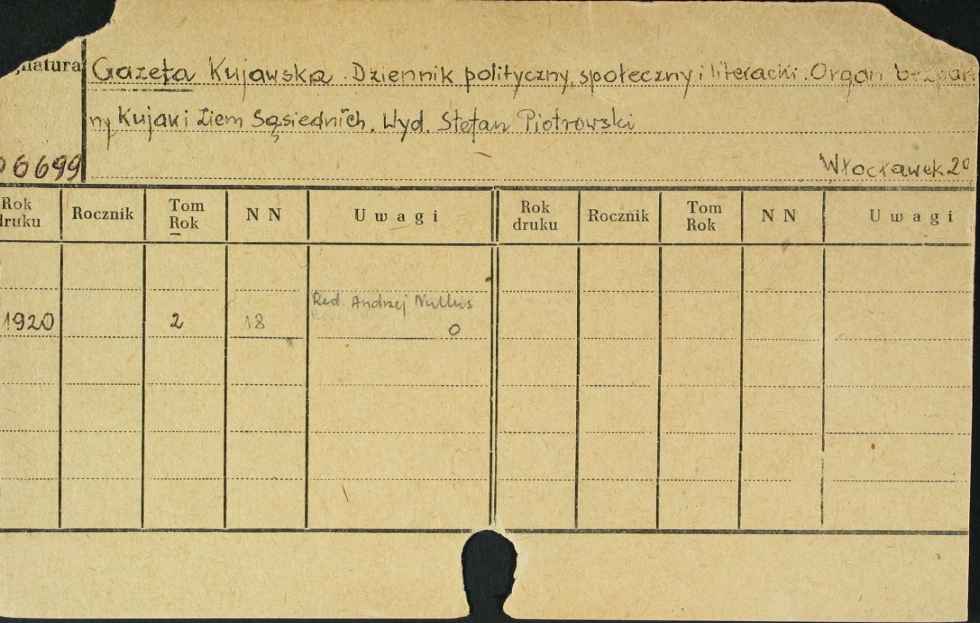 Gazeta Kujawska. Dziennik polityczny, społeczny i literacki. Organ
ny Kujaw i Ziem Sąsiednich. Wyd. Stefan Piotrowski
6699 Włocławek 2°
Rok druku Rocznik Tom Rok NN Uwagi Rok druku Rocznik Tom Rok NN Uwagi
Red Andrzej Nullus
1920 2 18 0